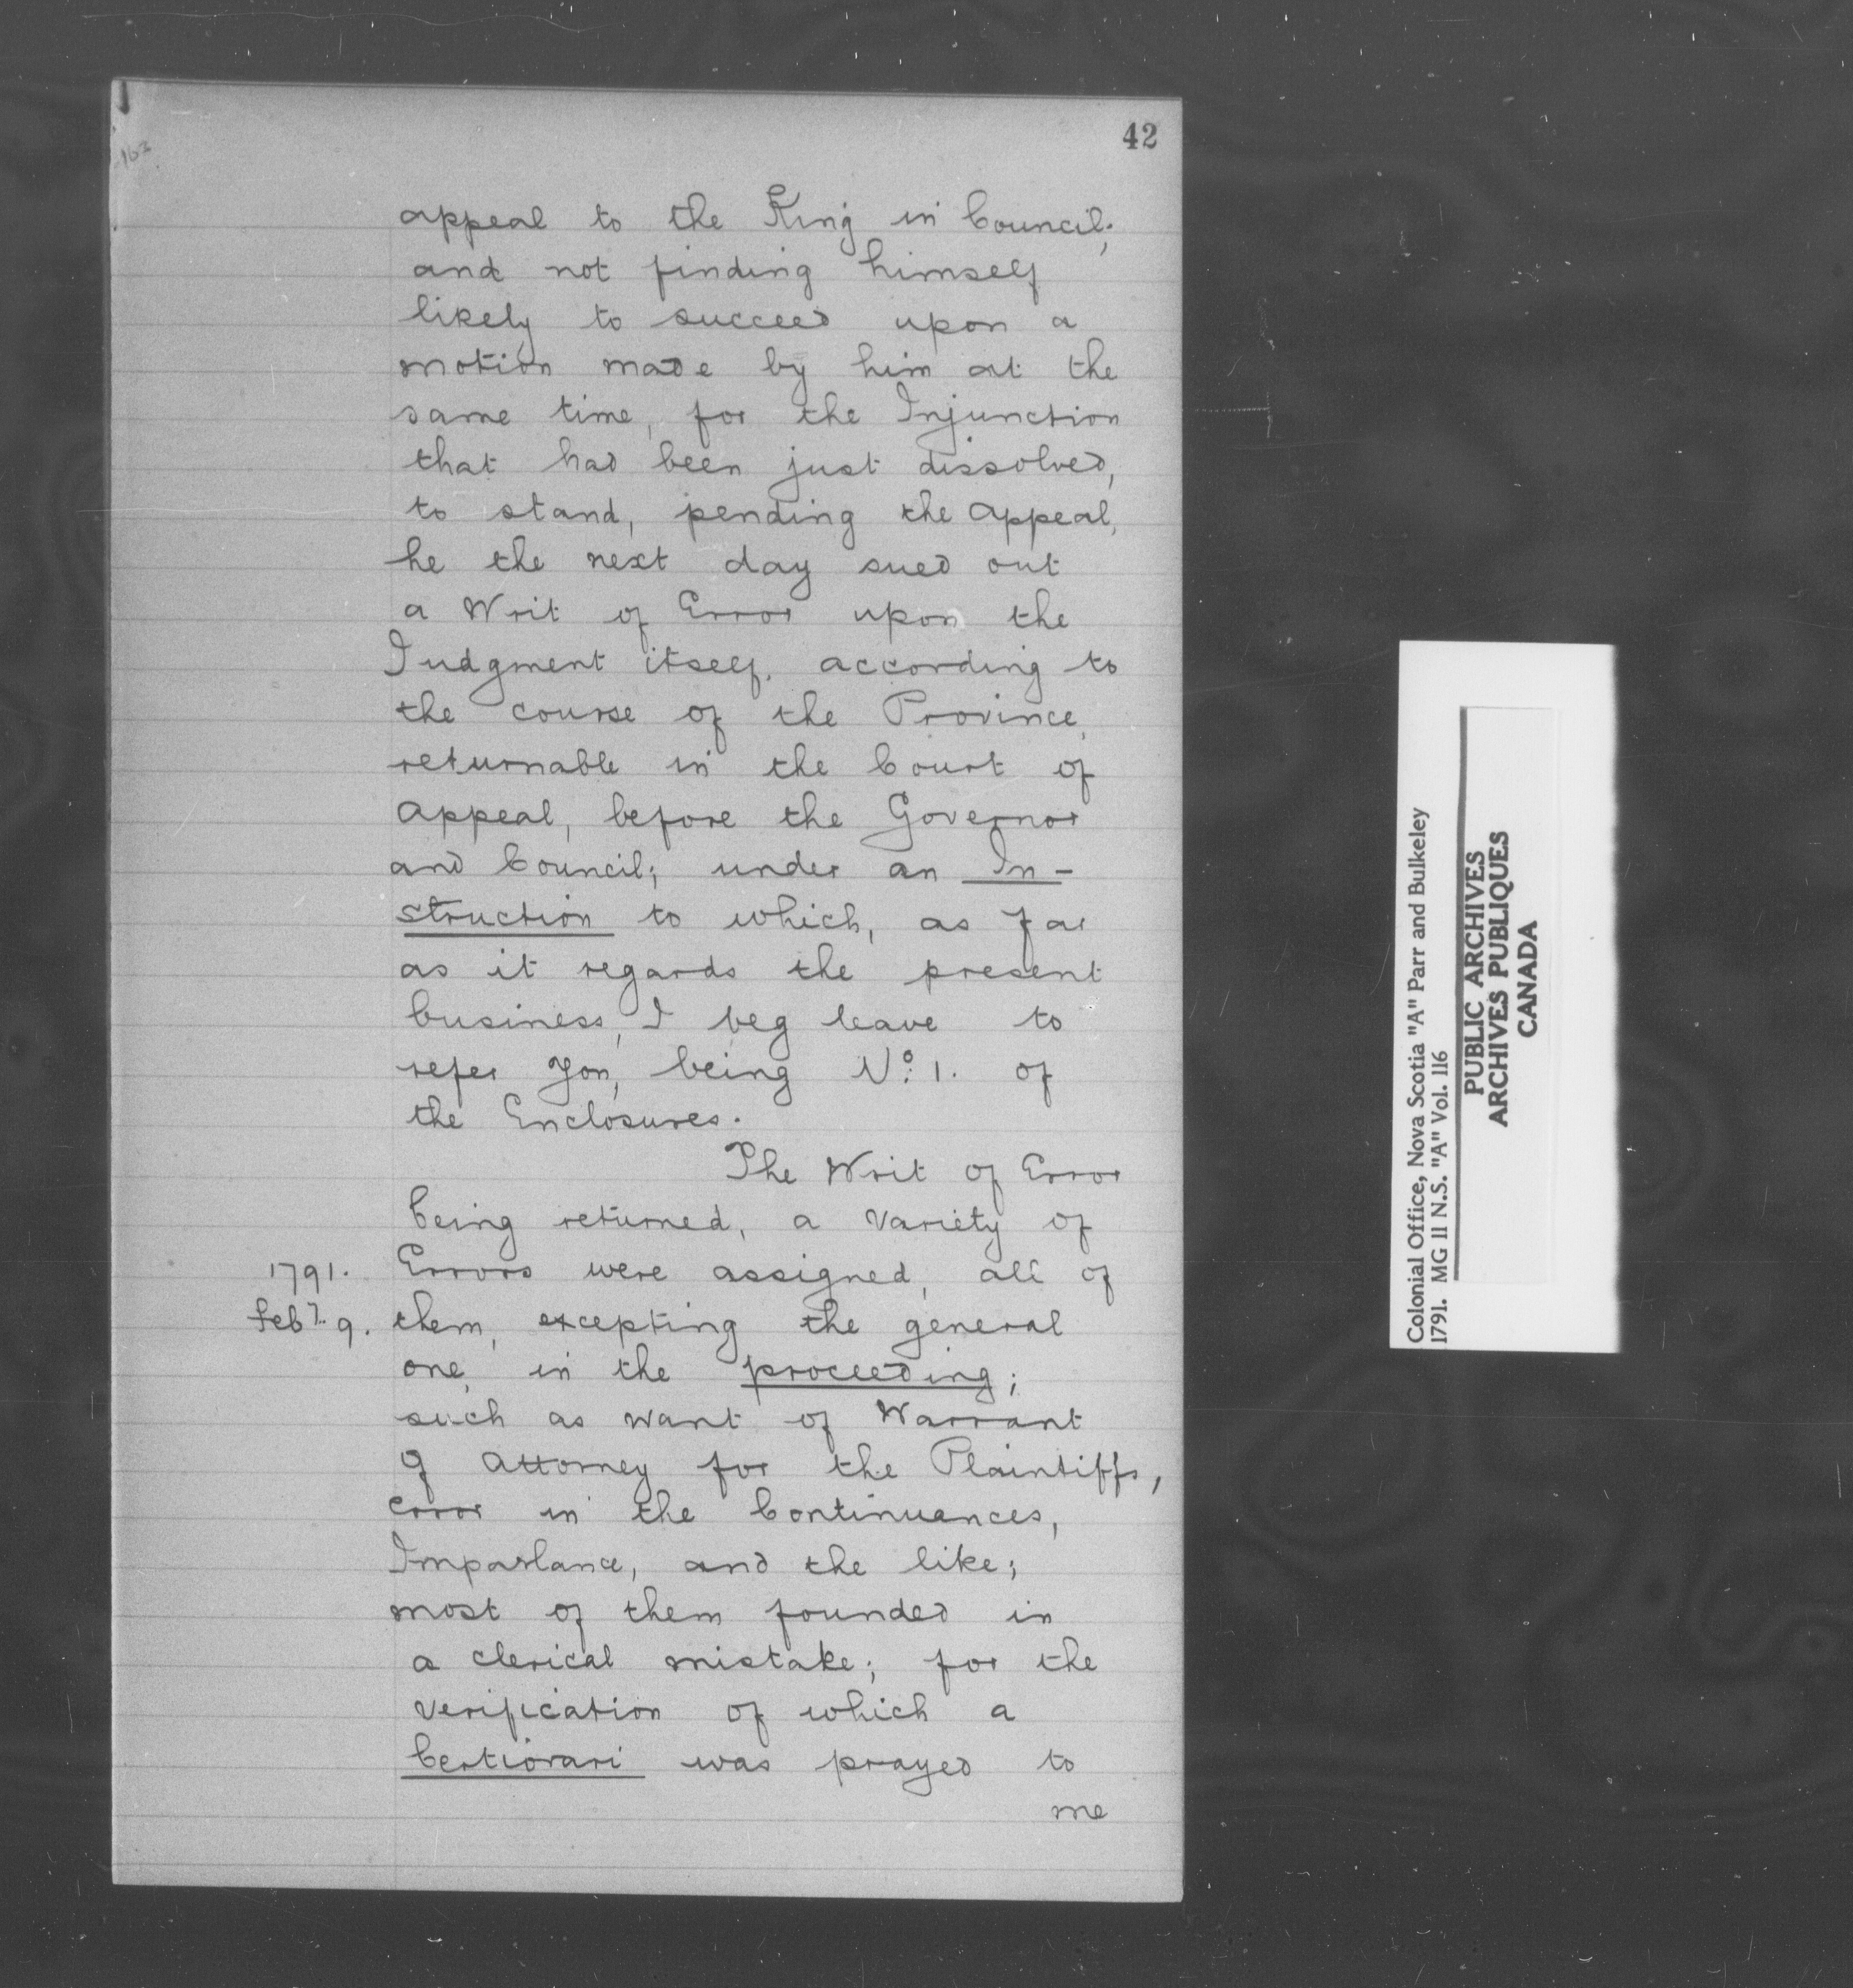 42
163
appeal to the King in Council;
and not finding himself
likely to succeed upon a
motion made by him at the
same time, for the Injunction
that had been just dissolved,
to stand, pending the Appeal,
he the next day sued out
a Writ of Error upon the
Judgment itself, according to
the course of the Province,
returnable in the Court of
Appeal, before the Governor
and Council; under an In-
struction to which, as far
as it regards the present
business, I beg leave to
refer You, being No. 1. of
the Enclosures.
The Writ of Error
being returned, a Variety of
1791. Errors were assigned, all of
Feby. 9. them, excepting the general
one, in the proceeding;
such as want of Warrant
of Attorney for the Plaintiffs,
error in the Continuances,
Imparlance, and the like;
most of them founded in
a clerical mistake; for the
verification of which a
Certiorari was prayed to
me
Colonial Office, Nova Scotia "A" Parr and Bulkeley
1791. MG 11 N.S. "A" Vol. 116
PUBLIC ARCHIVES
ARCHIVES PUBLIQUES
CANADA